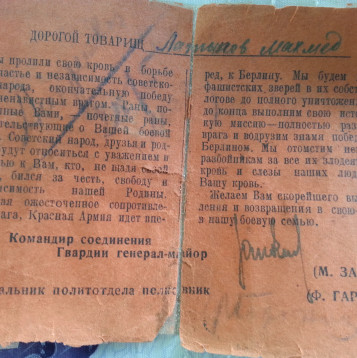 ДОРОГОЙ ТОВАРИЩ
ы пролили свою кровь, в борьбе
частье и независимость советско-
народа, окончательную победу
ненавистным врагом. Раны, по-
нные Вами, — почетные раны,
тельствующие о Вашей боевой
. Советский народ, друзья и род-
удут относиться с уважением и
ю к Вам, кто, не щадя своей
, бился за честь, свободу и
исимость нашей Родины.
вая ожесточенное сопротивле-
рага, Красная Армия идет впе-
ред, к Берлину. Мы будем
фашистских зверей в их собс
логове до полного уничтожен
до конца выполним свою исто
кую миссию—полностью разг
врага и водрузим знамя побед
Берлином. Мы отомстим
разбойникам за все их злодея
кровь и слезы наших люд
Вашу кровь.
Желаем Вам скорейшего вы
ления и возвращения в свою
в нашу боевую семью.
Командир соединения
Гвардии генерал-майор
(М. ЗА
альник политотдела полковник
(Ф. ГАР